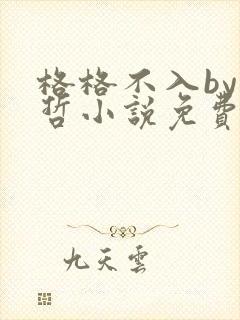 格格不入by
哲小説免費
九天雲